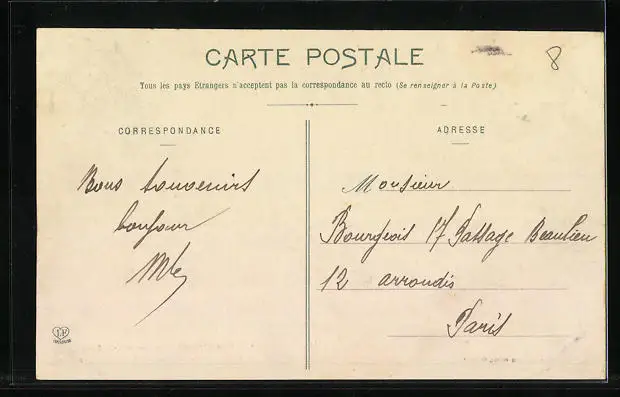 CARTE POSTALE
8
Tous les pays Etrangers n'acceptent pas la correspondance au recto (Se renseigner à la Poste)
CORRESPONDANCE
Bons souvenirs
bonjour
ADRESSE
Monsieur
Bourgeois 17 Passage Beaulieu
12 arrondis
Paris